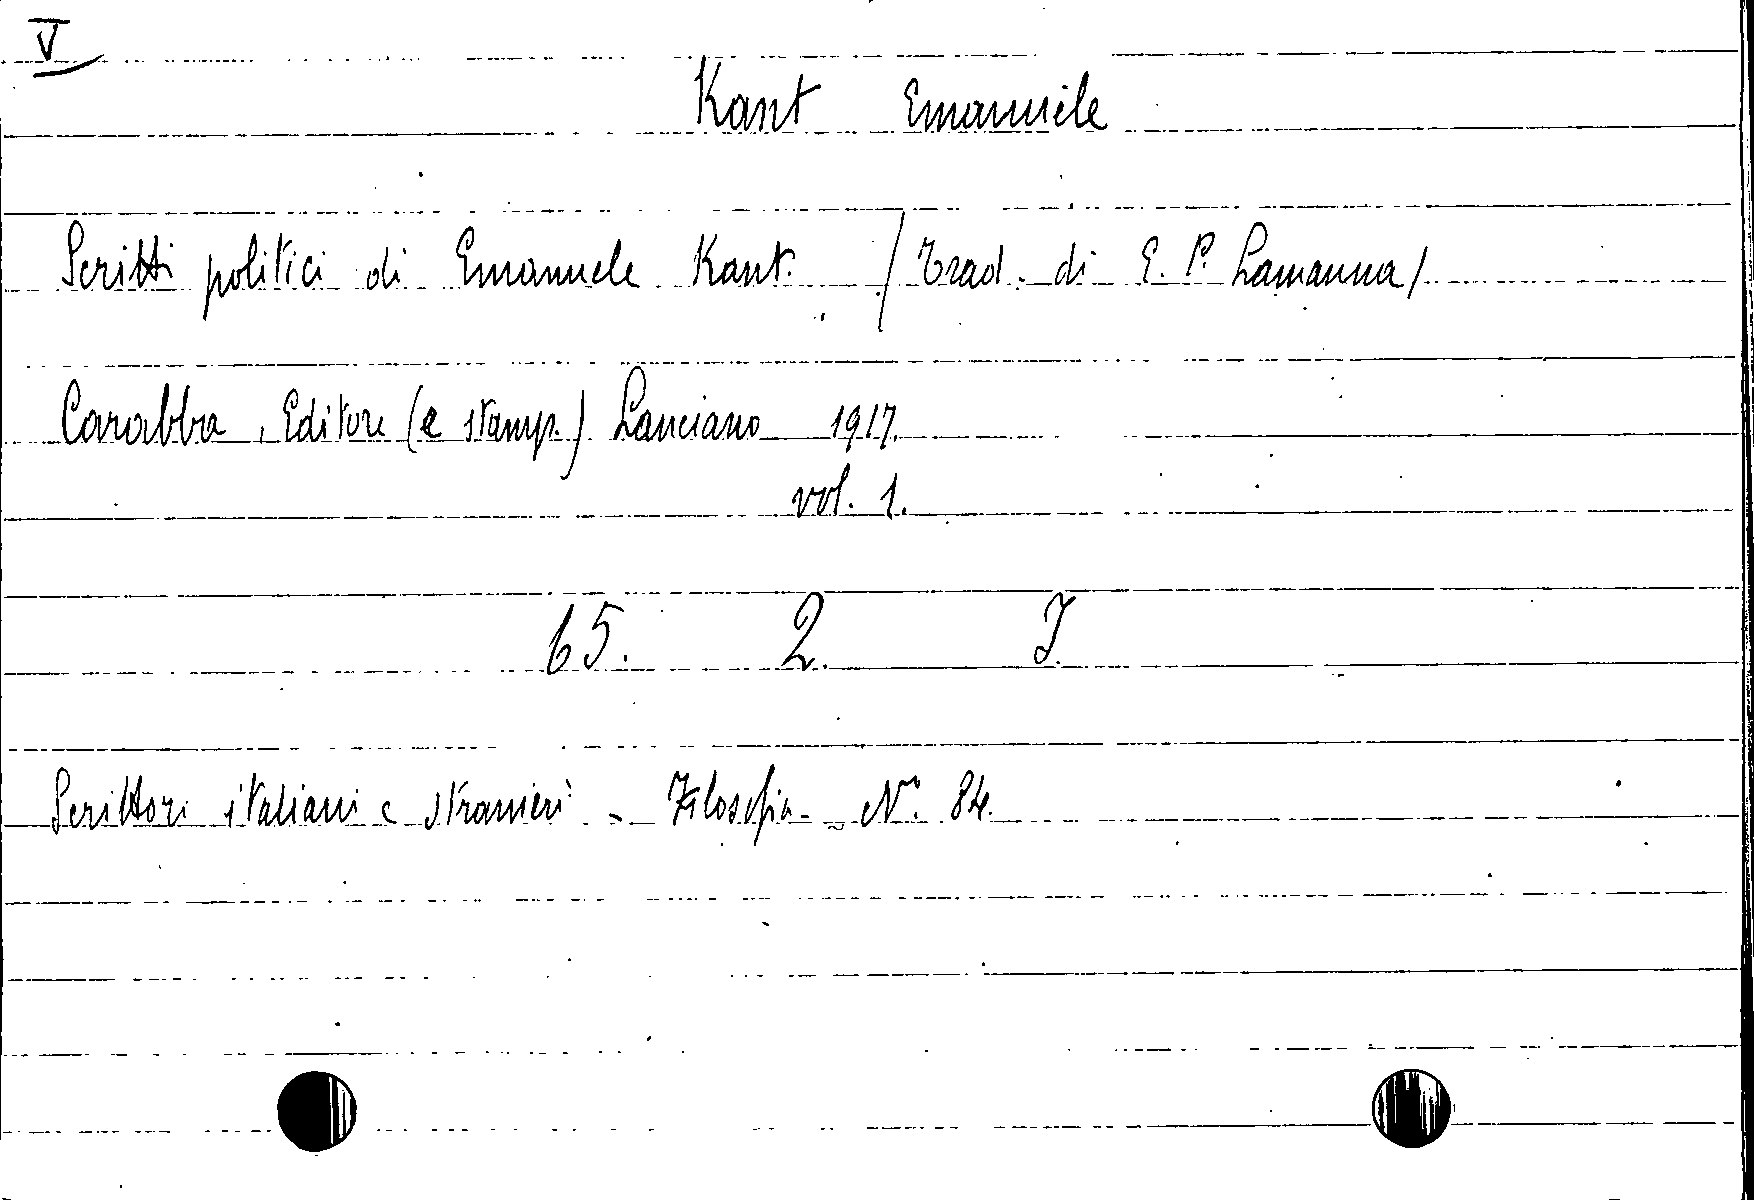 V
Kant Emanuele
Scritti politici di Emanuele Kant. / Trad. di E. P. Lamanna /
Carabba, Editore (e stamp.) Lanciano 1917.
vol. 1.
65. 2. J.
Scrittori italiani e stranieri - Filosofia - N. 84.